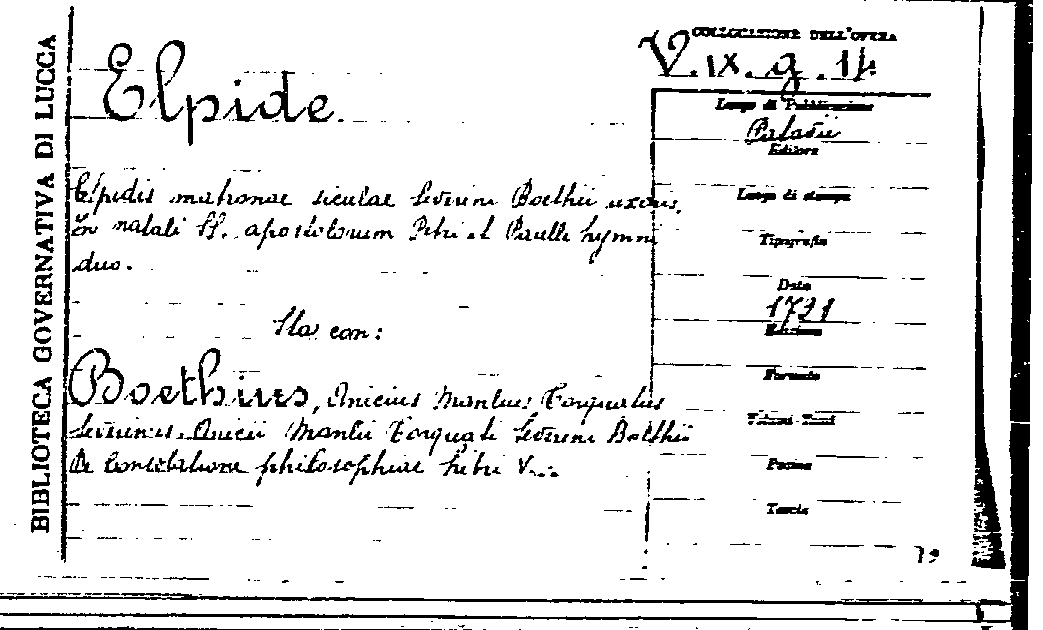 BIBLIOTECA GOVERNATIVA DI LUCCA
COLLOCAZIONE DELL'OPERA
V.IX.g.14
Elpide.
Elpidis matronae siculae Severini Boethii uxoris,
in natali SS. apostolorum Petri et Paulli hymni
duo.
Sta con:
Boethius, Anicius Manlius Torquatus
Severinus. Anicii Manlii Torquati Severini Boethii
De consolatione philosophiae libri V...
Luogo di Pubblicazione
Patavii
Editore
Luogo di stampa
Tipografia
Data
1721
Edizione
Formato
Volumi-Tomi
Pagine
Tavole
79